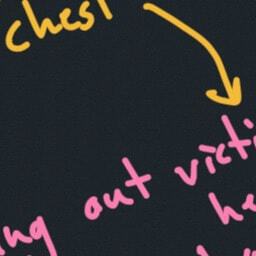 chest
ing aut victi
he